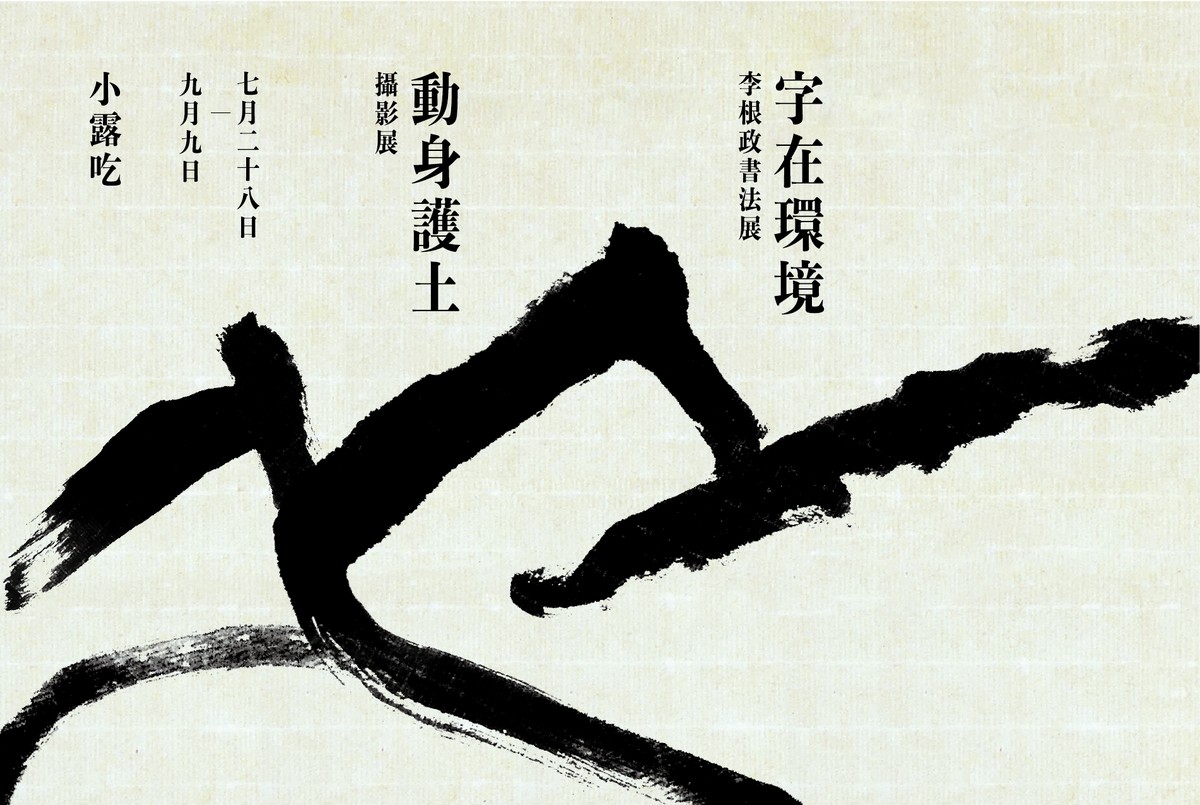 字在環境
李根政書法展
動身護土
攝影展
七月二十八日
—
九月九日
小露吃